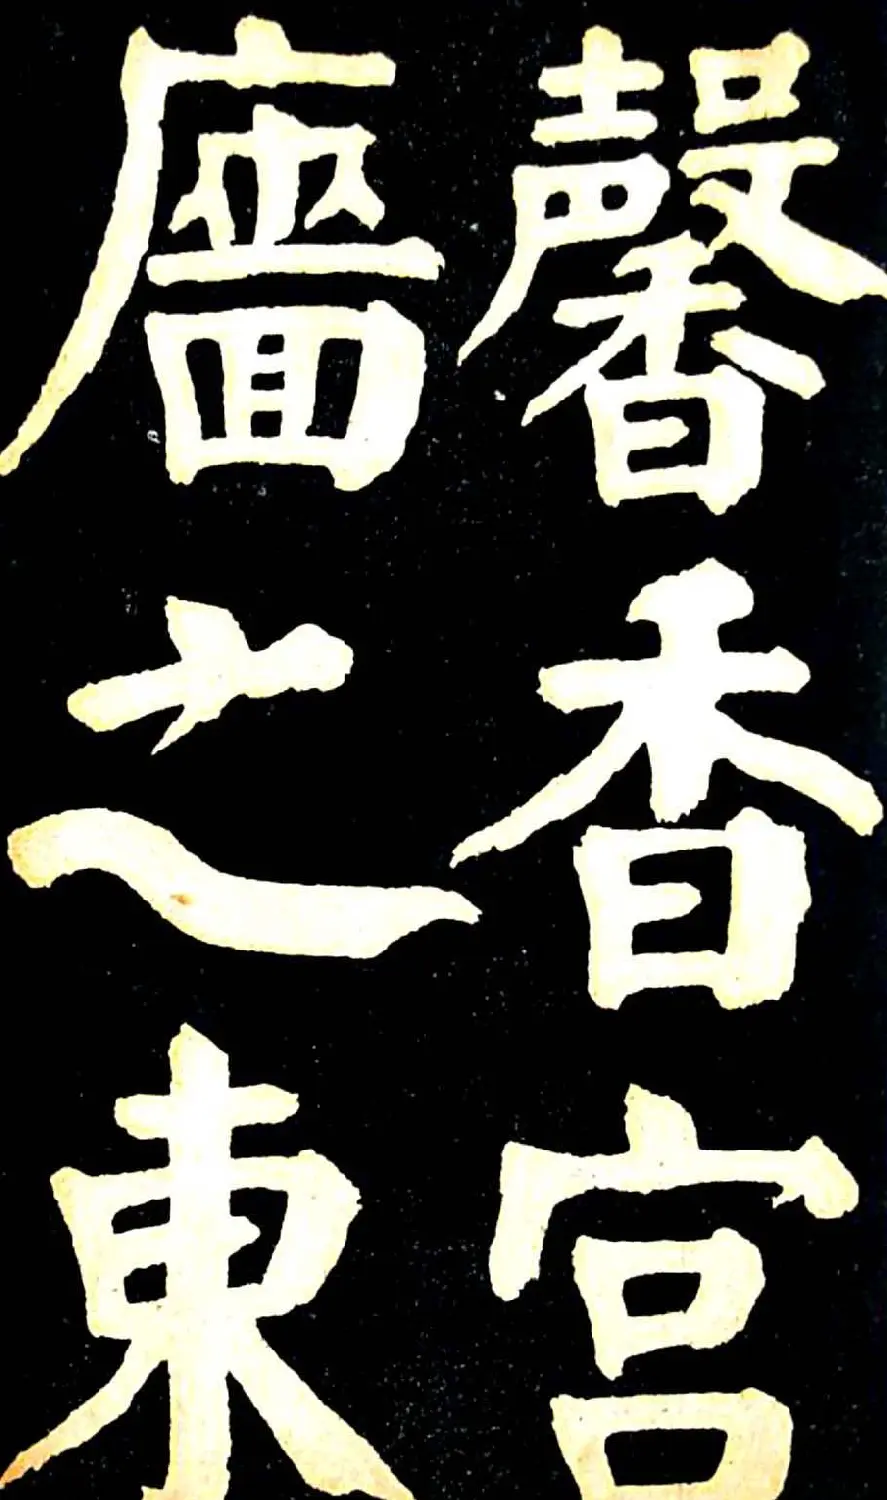 馨香宮
廧之東